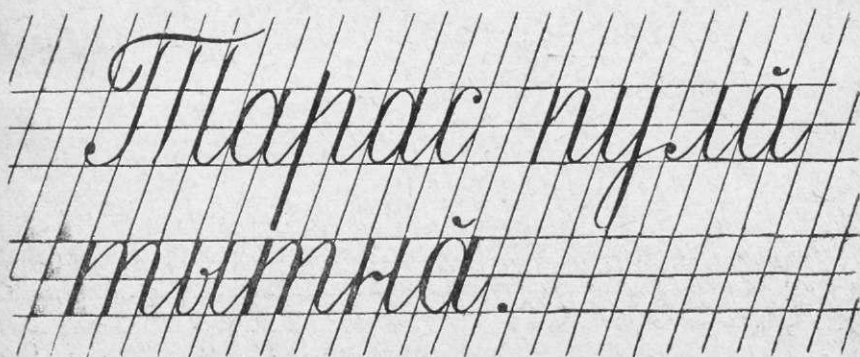 Тарас пулă
тытнă.